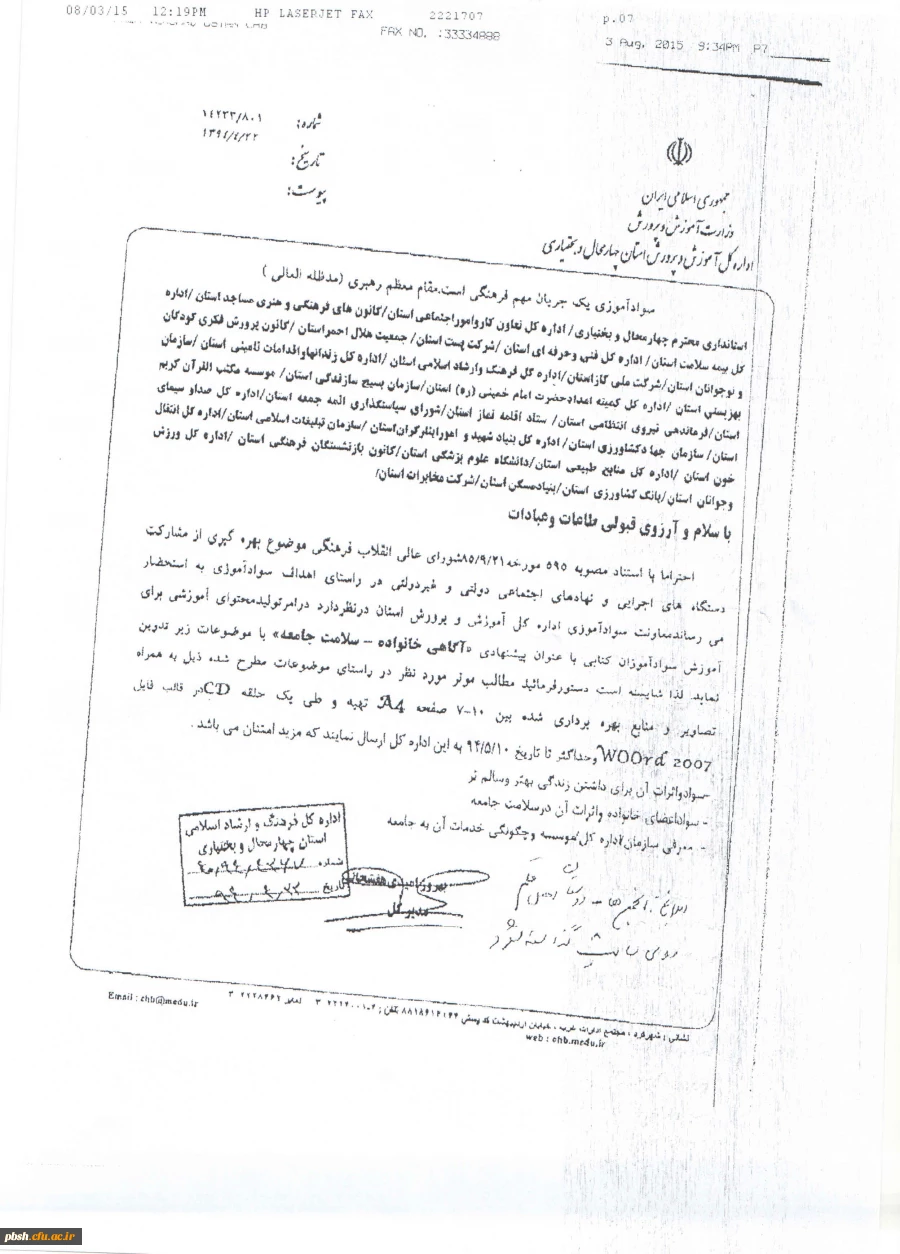 08/03/15 12:19PM HP LASERJET FAX 2221707 p.07
FAX NO. :33334888
3 Aug. 2015 9:34PM P7
شماره: ۱۴۲۳۳/۸۰۱
۱۳۹۴/۴/۲۲
تاریخ:
پیوست:
جمهوری اسلامی ایران
وزارت آموزش و پرورش
اداره کل آموزش و پرورش استان چهارمحال و بختیاری
سوادآموزی یک جریان مهم فرهنگی است.مقام معظم رهبری (مدظله العالی )
استانداری محترم چهارمحال و بختیاری/ اداره کل تعاون کارواموراجتماعی استان/کانون های فرهنگی و هنری مساجد استان /اداره
کل بیمه سلامت استان/ اداره کل فنی وحرفه ای استان /شرکت پست استان/ جمعیت هلال احمراستان /کانون پرورش فکری کودکان
و نوجوانان استان/شرکت ملی گازاستان/اداره کل فرهنگ وارشاد اسلامی استان /اداره کل زندانهاواقدامات تامینی استان /سازمان
بهزیستی استان /اداره کل کمیته امدادحضرت امام خمینی (ره) استان/سازمان بسیج سازندگی استان/ موسسه مکتب القرآن کریم
استان/فرماندهی نیروی انتظامی استان/ ستاد اقامه نماز استان/شورای سیاستگذاری ائمه جمعه استان/اداره کل صداو سیمای
استان/ سازمان جهادکشاورزی استان/ اداره کل بنیاد شهید و امورایثارگران‌استان /سازمان تبلیغات اسلامی استان/اداره کل انتقال
خون استان /اداره کل منابع طبیعی استان/دانشگاه علوم پزشکی استان/کانون بازنشستگان فرهنگی استان /اداره کل ورزش
وجوانان استان/بانک کشاورزی استان/بنیادمسکن استان/شرکت مخابرات استان/
با سلام و آرزوی قبولی طاعات وعبادات
احتراما با استناد مصوبه ۵۹۵ مورخه۸۵/۹/۲۱شورای عالی انقلاب فرهنگی موضوع بهره گیری از مشارکت
دستگاه های اجرایی و نهادهای اجتماعی دولتی و غیردولتی در راستای اهداف سوادآموزی به استحضار
می رساندمعاونت سوادآموزی اداره کل آموزش و پرورش استان درنظردارد درامرتولیدمحتوای آموزشی برای
آموزش سوادآموزان کتابی با عنوان پیشنهادی «آگاهی خانواده – سلامت جامعه» با موضوعات زیر تدوین
نماید. لذا شایسته است دستورفرمائید مطالب موثر مورد نظر در راستای موضوعات مطرح شده ذیل به همراه
تصاویر و منابع بهره برداری شده بین ۱۰-۷ صفحه A4 تهیه و طی یک حلقه CDدر قالب فایل
WOOrd 2007 وحداکثر تا تاریخ ۹۴/۵/۱۰ به این اداره کل ارسال نمایند که مزید امتنان می باشد .
-سوادواثرات آن برای داشتن زندگی بهتر وسالم تر
- سواداعضای خانواده واثرات آن درسلامت جامعه
- معرفی سازمان/اداره کل/موسسه وچگونگی خدمات آن به جامعه
اداره کل فرهنگ و ارشاد اسلامی
استان چهارمحال و بختیاری
شماره
تاریخ
مدیر کل
نشانی : شهرکرد ، مجتمع ادارات غرب ، خیابان اردیبهشت کد پستی
Email : chb@medu.ir
web : chb.medu.ir
pbsh.cfu.ac.ir